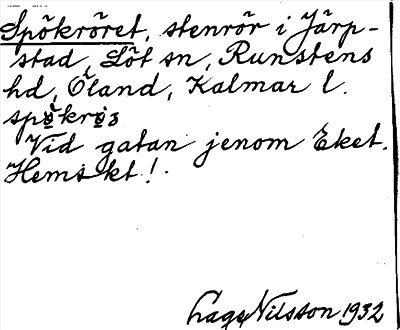 Spökröret, stenrör i Järp-
stad, Löt sn, Runstens
hd, Öland, Kalmar l.
Vid gatan jenom Eket.
Hemskt!
Lage Nilsson 1932